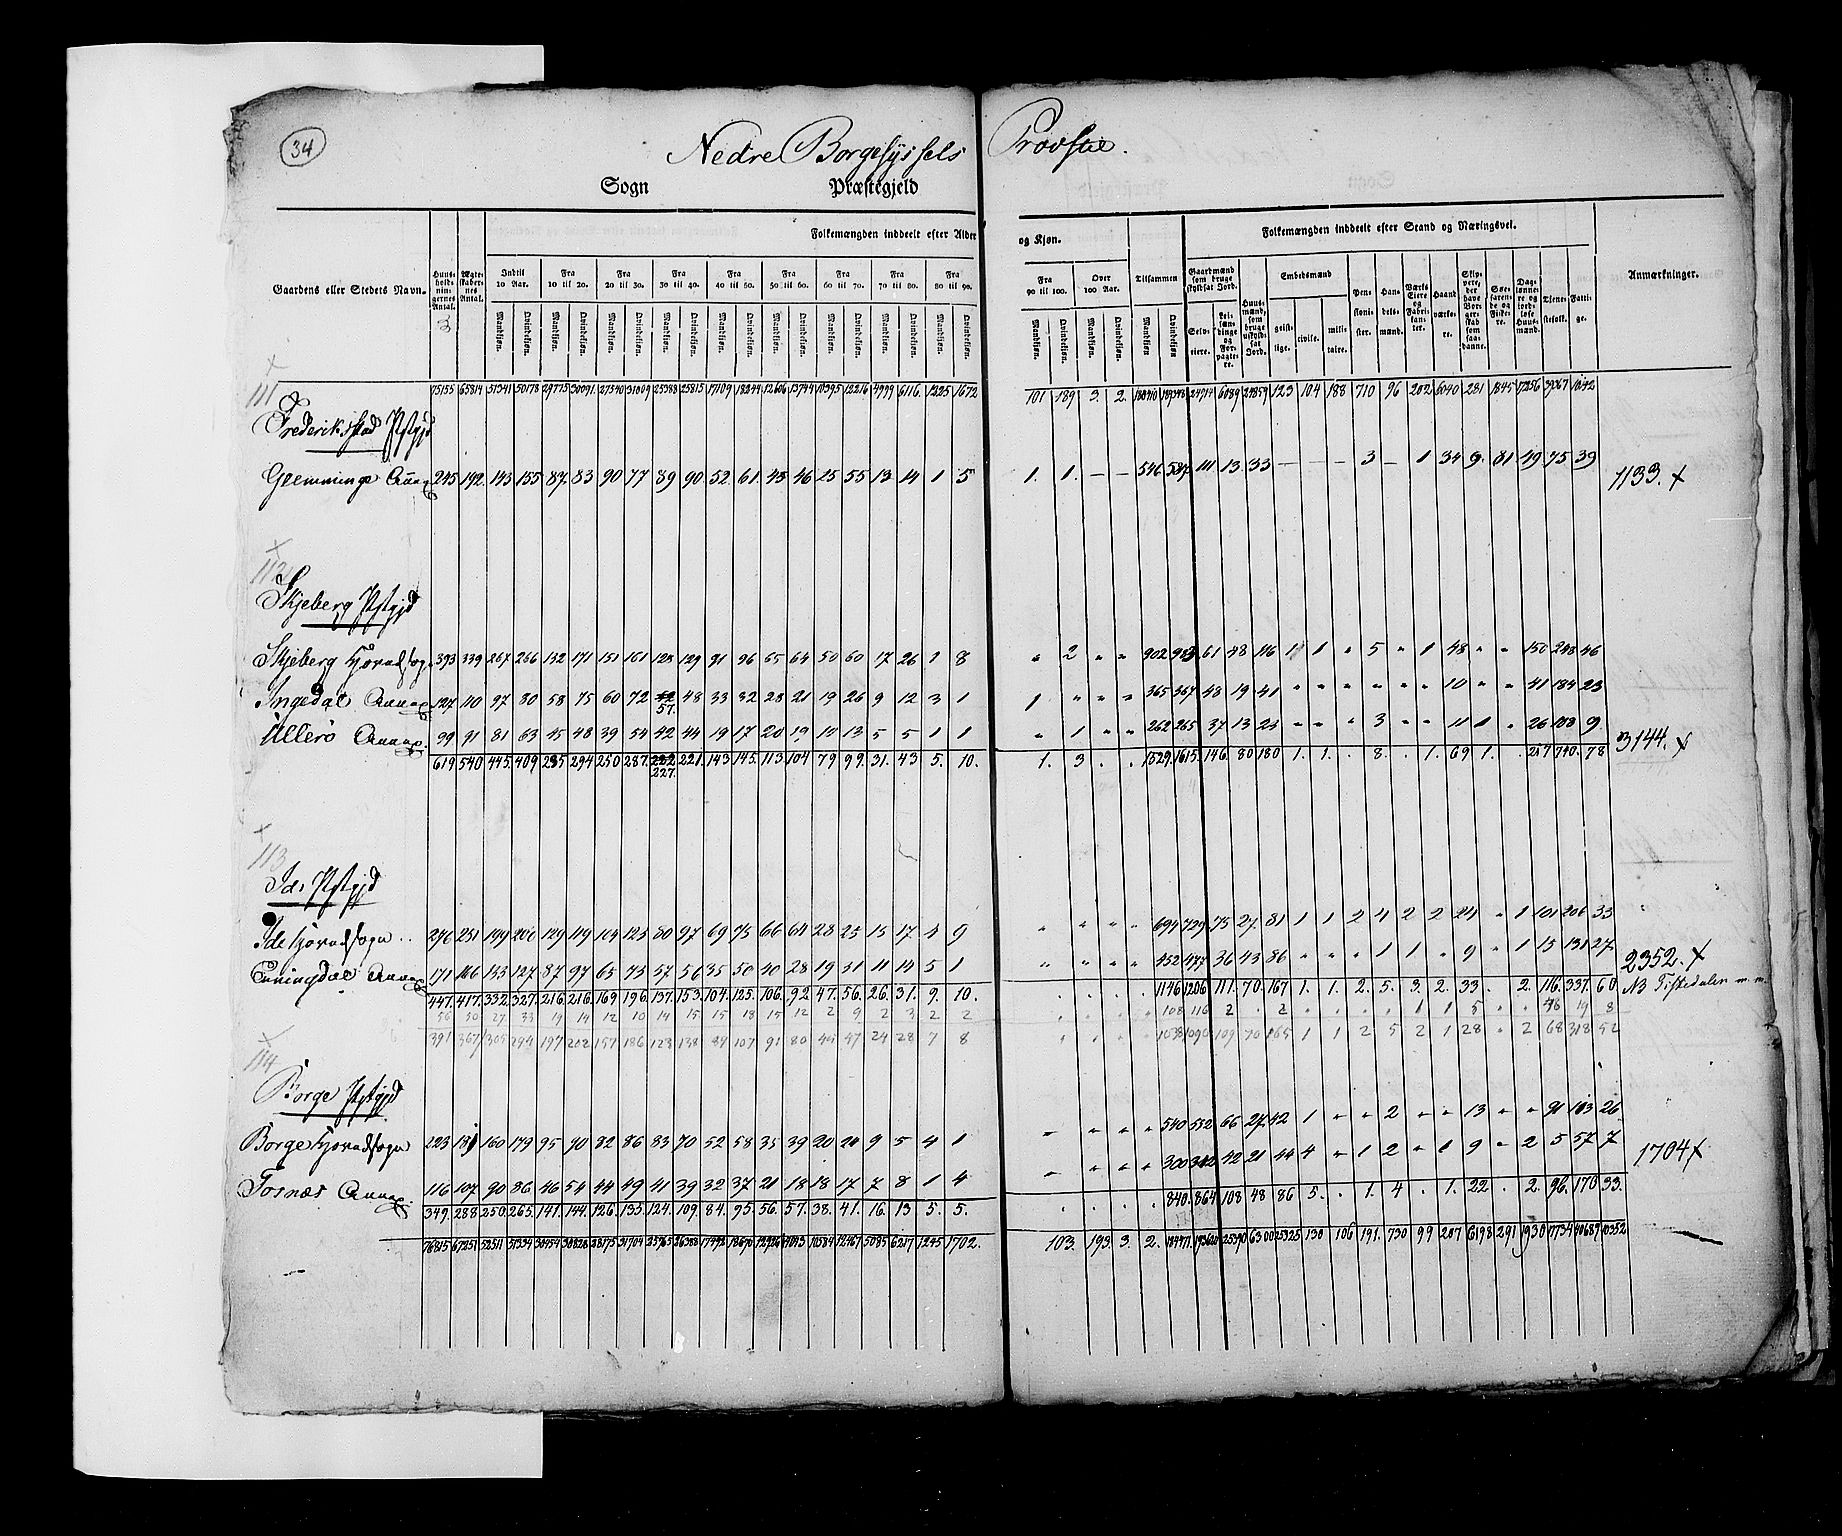 34
Nedre Borgesyssels Provstie.
Sogn Præstegjeld
Gaardens eller Stedets Navn.
Huus-holdnin-gernes Antal.
Ægte-skaber-nes Antal.
Folkemængden inddeelt efter Alder og Kjøn.
Indtil 10 Aar. Fra 10 til 20. Fra 20 til 30. Fra 30 til 40. Fra 40 til 50. Fra 50 til 60. Fra 60 til 70. Fra 70 til 80. Fra 80 til 90. Fra 90 til 100. Over 100 Aar. Tilsammen
Mandkjøn. Qvindekjøn. Mandkjøn. Qvindekjøn. Mandkjøn. Qvindekjøn. Mandkjøn. Qvindekjøn. Mandkjøn. Qvindekjøn. Mandkjøn. Qvindekjøn. Mandkjøn. Qvindekjøn. Mandkjøn. Qvindekjøn. Mandkjøn. Qvindekjøn. Mandkjøn. Qvindekjøn. Mandkjøn. Qvindekjøn. Mandkjøn. Qvindekjøn.
Folkemængden inddeelt efter Stand og Næringsvei.
Gaardmænd som bruge skyldsat Jord.
Selv-eiere.
Lei-læn-dinge og For-pagte-re.
Huus-mænd, som bruge uskyld-sat Jord.
Embedsmænd
geist-lige. civile. mili-taire.
Pen-sioni-ster.
Han-dels-mænd.
Værks Eiere og Fabri-kan-ter.
Haand-værke-re.
Skip-pere, der have Bor-ger-skab som saa-danne.
Søe-farende og Fiske-re.
Dag-lønne-re og jord-løse Huus-mænd.
Tjene-stefolk.
Fatti-ge.
Anmærkninger.
101 189 3. 2.
111
Frederiksstad Pstgjd
Glemminge Annex 245 192. 143 155 87. 83 90 77 89 90. 52. 61. 45 46 25 55 13 14 1 5 1. 1. — — 546 587 111 13. 33 — — — 3 — 1 34 9. 81 49 75 39 1133. x
112
Skjeberg Pstgjd
Skjeberg Hovedsogn 393 339 267 266 132 171 151 161 128 129 91 96 65 64 50 60 17 26 1 8 " 2 " " 902 983 61 48 116 1 1 " 5 " 1 48 " " 150 248 46
Ingedal Annex 127 110 97 80 58 75 60 72 57. 48 33 32 28 21 19 26 9 12 3 1 1 " " " 365 367 48 19 41 " " " " " " 10 " " 41 184 23
Ullerø Annex. 99 91 81 63 45 48 39 54 42 44 19 17 20 19 10 13 5 5 1 1 " 1 " " 262 265 37 13 23 " " " 3 " " 11 1 " 26 108 9 3144. x
619 540 445. 409 235 294 250 287. 227. 221. 143 145. 113. 104 79 99. 31. 43 5. 10. 1. 3 . . 1529. 1615. 146 80 180 1. 1. . 8. . 1. 69 1. . 217 740. 78
113
Ids Pstgjd
Ide Hovedsogn 276 251 199 200 129 119 104 123 80 97 69 75 66 64 28 25 15 17. 4 9 " " " " 694 729 75 27. 81 1 1 2 4 2 2 24 " 1 101 206 33
Enningdal Annex 171 166 133 127 87 97 65 73 57 56 35 50 40 28 19 31 11 14 5 1 " " " " 452 477 36 43 86 " " " 1 1 " 9 " 1 15 131 27 2352. x
447. 417. 332. 327. 216. 216. 169 196. 137. 153. 104. 125. 106. 92 47. 56. 26. 31. 9. 10. . . . . 1146 1206 111. 70. 167 1. 1. 2. 5. 3. 2. 33 . 2. 116. 337. 60 NB Tistedalen m.m.
56 50 27 33 19 14 12 10 14 15 15 18 15 12 2 9 2 3 2 2 108 116 2 . 2 1 1 5 48 19 8
391 367 305 294 197 202 157 186 123 138 89 107 91 80 45 47 24 28 7 8 1038 1090 109 70 165 1 1 2 5 2 1 28 " 2 68 318 52
114
Borge Pstgjd
Borge Hovedsogn 223 181 160 179 95 90 82 86 83 70 52 58 35 39 20 24 9 5 4 1 " " " " 540 552 66 27 42 1 " " 2 " " 13 " " 91 113 26
Torsnæs Annex. 116 107 90 86 46 54 44 49 41 39 32 37 21 18 18 17 7 8 1 4 " " " " 300 312 42 21 44 4 " 1 2 " 1 9 " 2 5 57 7 1704 x
349. 288 250. 265. 141. 144. 126 135. 124. 109. 84. 95. 56. 57. 38. 41. 16. 13 5. 5. . . . . 840. 864 108 48 86 5. . 1. 4 . 1. 22 . 2. 96. 170 33.
103. 193. 3. 2.